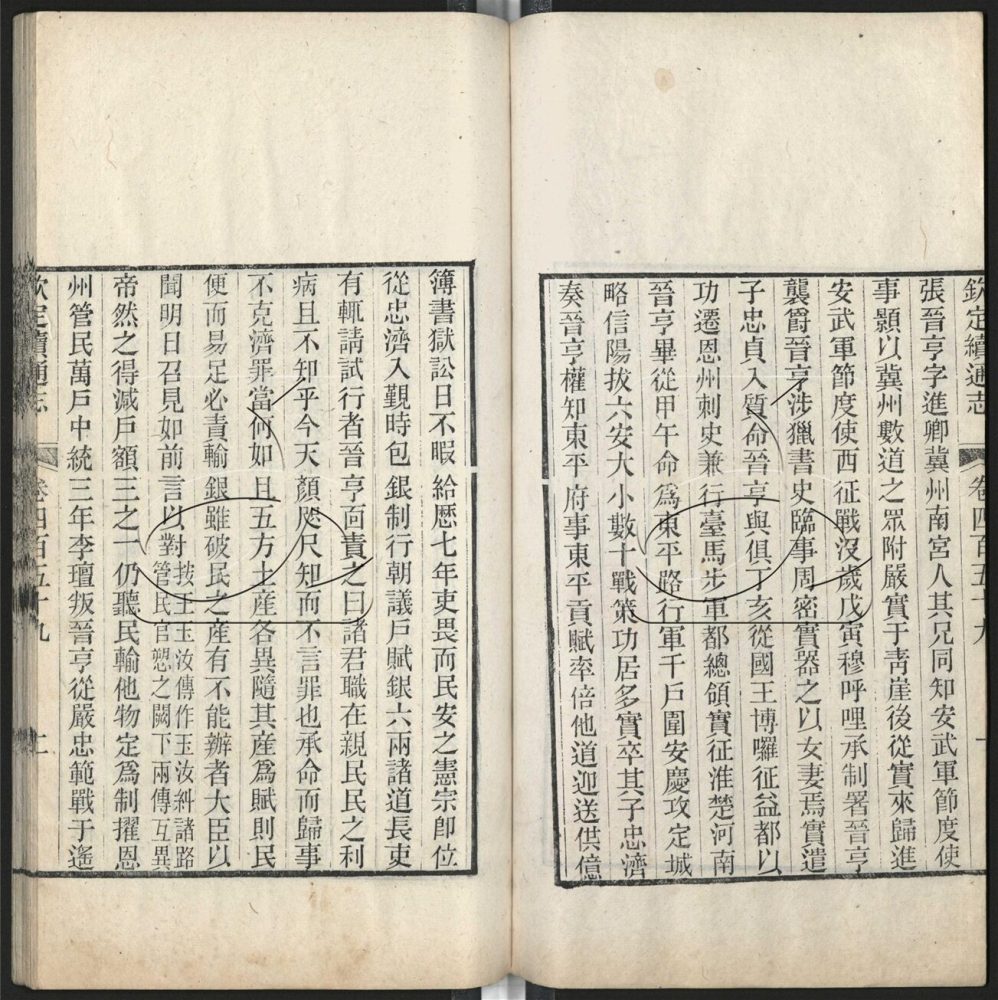 欽定續通志 卷四百五十九 一
張晉亨字進卿冀州南宮人其兄同知安武軍節度使
事顥以冀州數道之眾附嚴實于靑崖後從實來歸進
安武軍節度使西征戰沒歲戊寅穆呼哩承制署晉亨
襲爵晉亨涉獵書史臨事周密實器之以女妻焉實遣
子忠貞入質命晉亨與俱丁亥從國王博囉征益都以
功遷恩州刺史兼行臺馬步軍都總領實征淮楚河南
晉亨畢從甲午命爲東平路行軍千戶圍安慶攻定城
略信陽拔六安大小數十戰策功居多實卒其子忠濟
奏晉亨權知東平府事東平貢賦率倍他道迎送供億
簿書獄訟日不暇給歷七年吏畏而民安之憲宗卽位
從忠濟入覲時包銀制行朝議戶賦銀六兩諸道長吏
有輒請試行者晉亨面責之曰諸君職在親民民之利
病且不知乎今天顏咫尺知而不言罪也承命而歸事
不克濟罪當何如且五方土產各異隨其產爲賦則民
便而易足必責輸銀雖破民之產有不能辦者大臣以
聞明日召見如前言以對按王玉汝傳作玉汝糾諸路
管民官愬之闕下兩傳互異
帝然之得減戶額三之一仍聽民輸他物定爲制擢恩
州管民萬戶中統三年李璮叛晉亨從嚴忠範戰于遙
欽定續通志 卷四百五十九 二